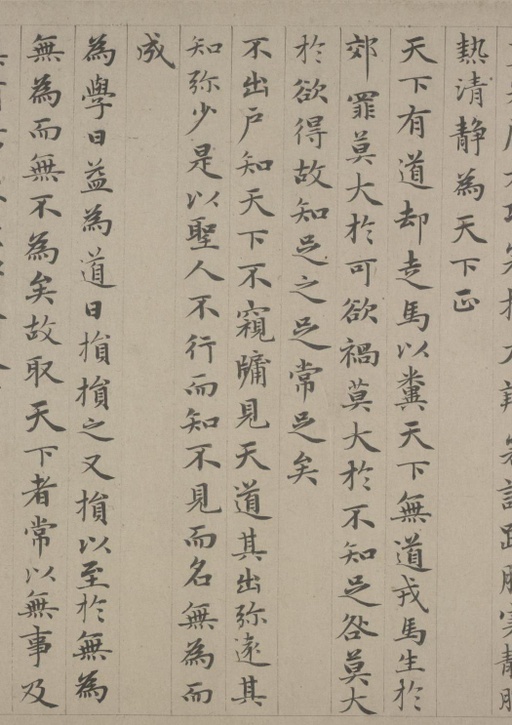 熱清靜為天下正
天下有道却走馬以糞天下無道戎馬生於
郊罪莫大於可欲禍莫大於不知足咎莫大
於欲得故知足之足常足矣
不出戶知天下不窺牖見天道其出弥遠其
知弥少是以聖人不行而知不見而名無為而
成
為學日益為道日損損之又損以至於無為
無為而無不為矣故取天下者常以無事及